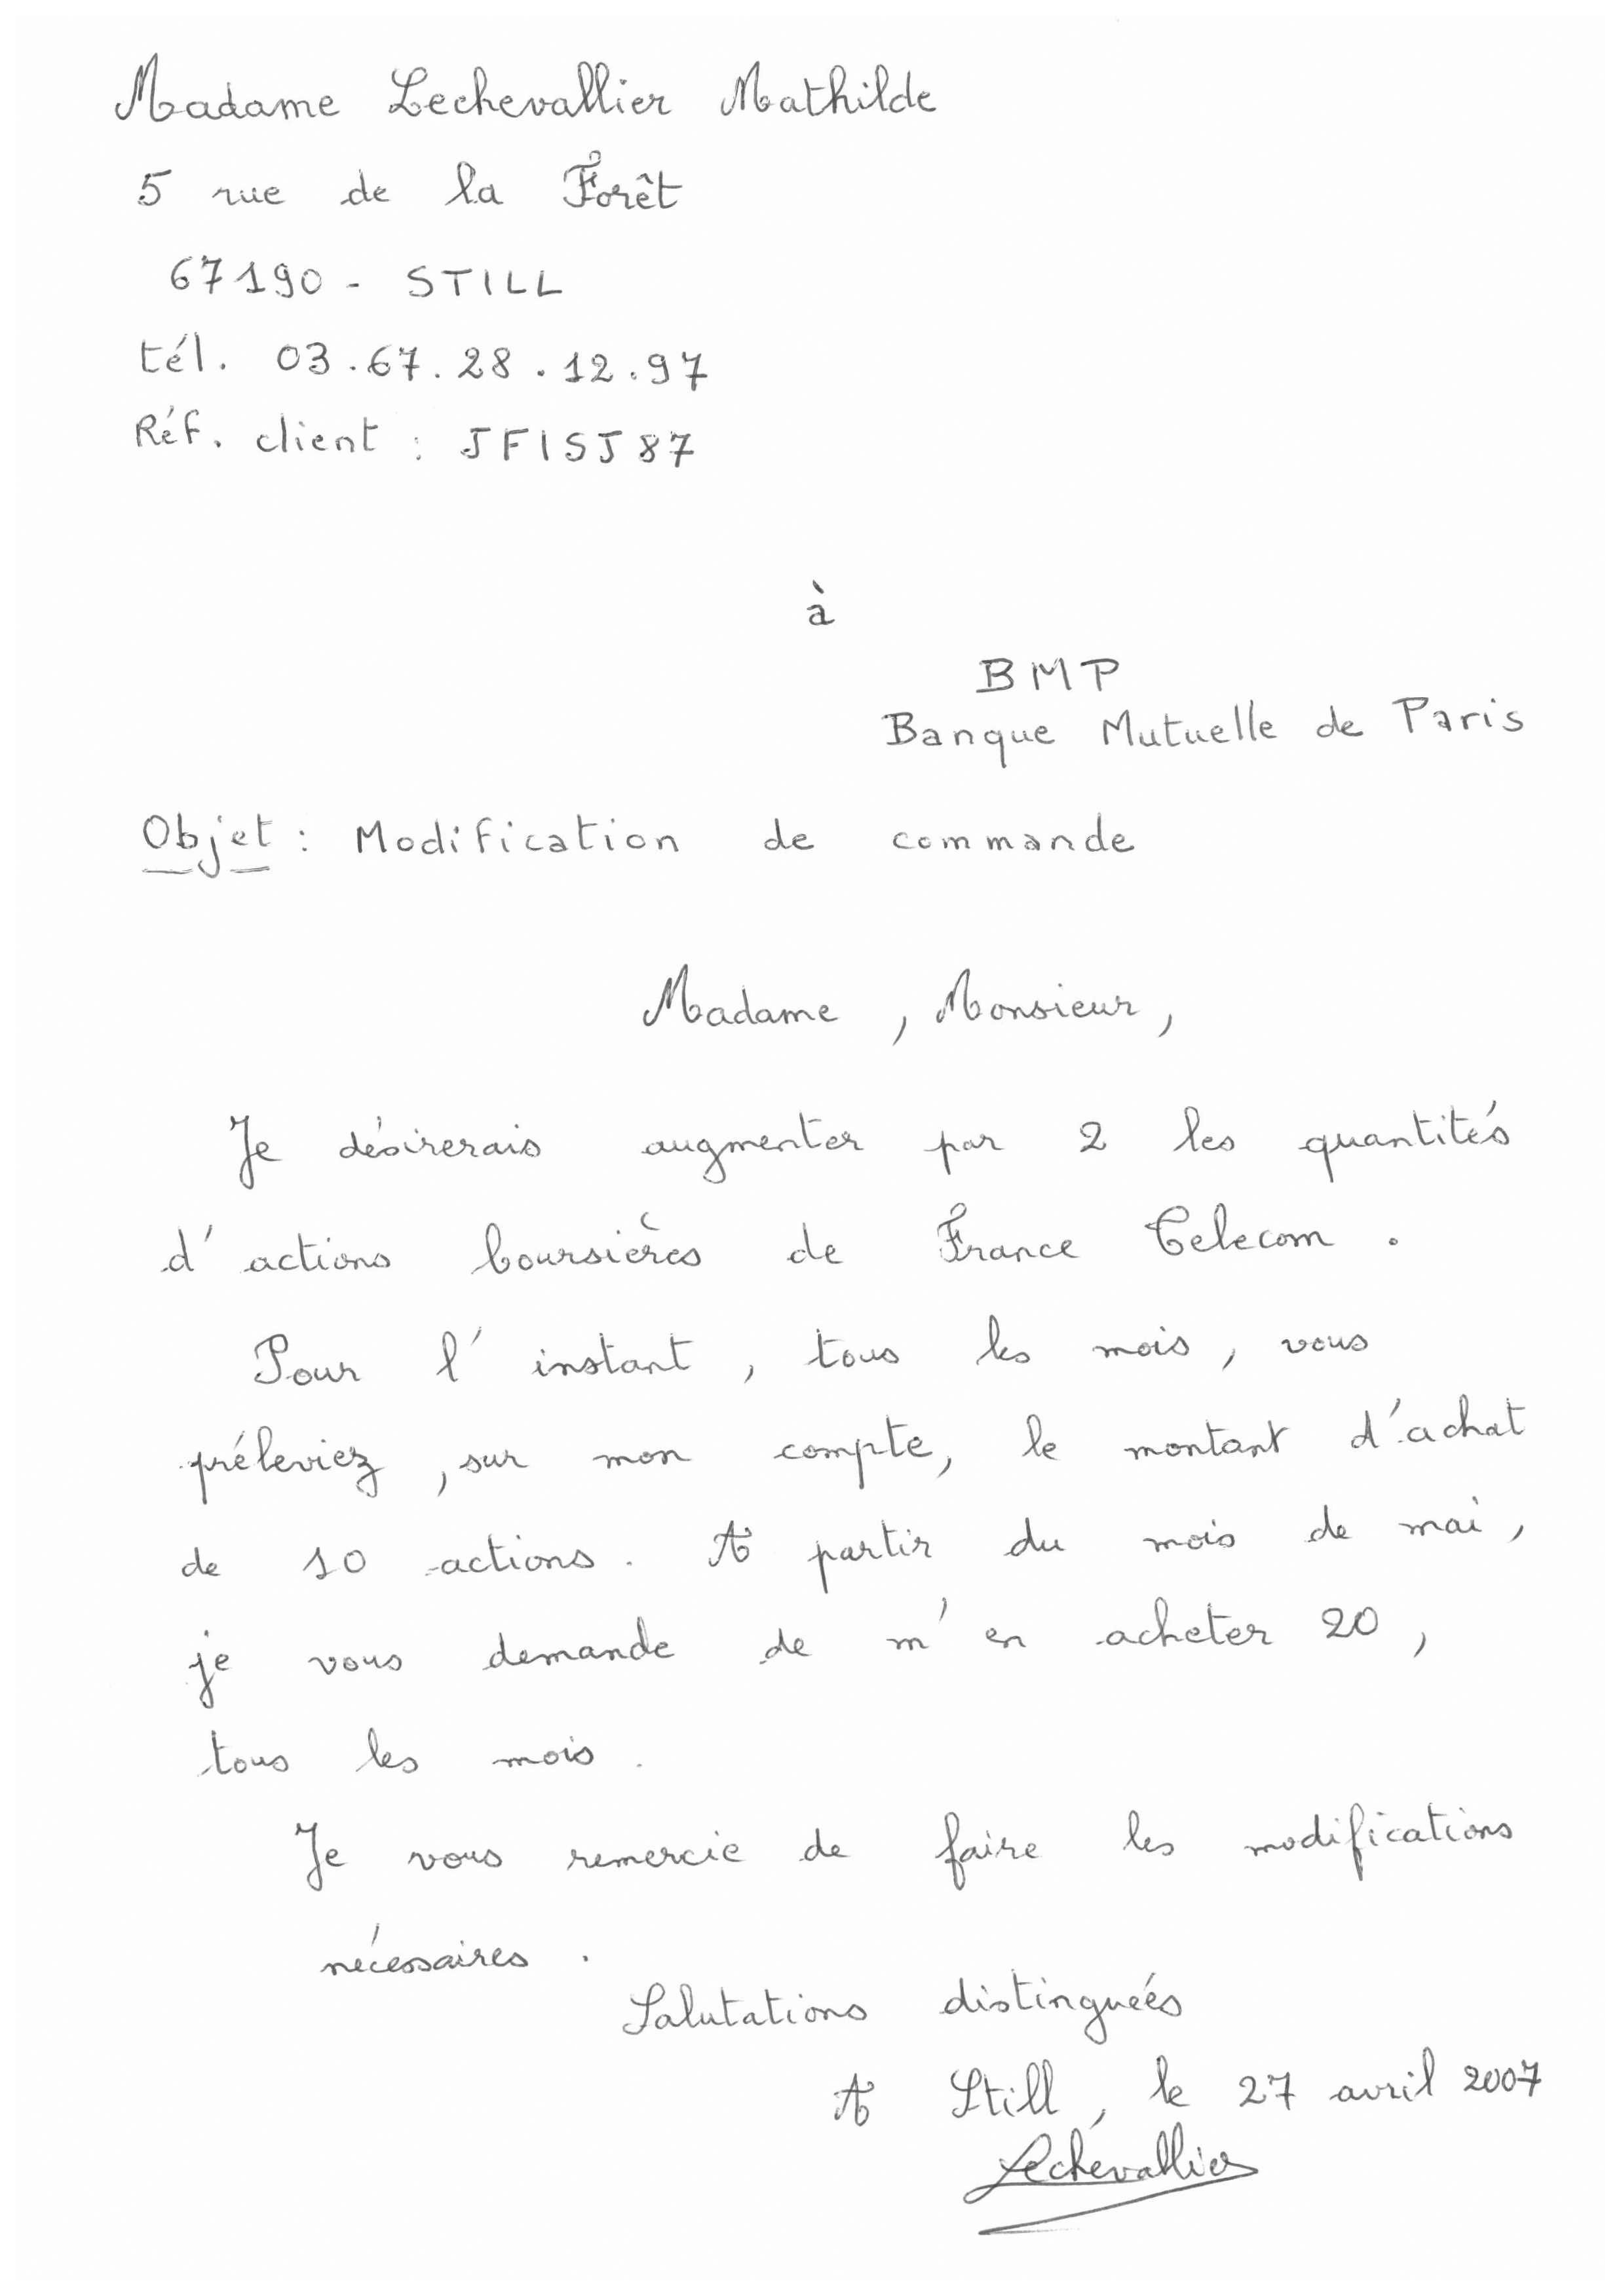 Madame Lechevallier Mathilde
5 rue de la Forêt
67190 - STILL
tél. 03.67.28.12.97
Réf. client : JFISJ87
à
BMP
Banque Mutuelle de Paris
Objet : Modification de commande
Madame, Monsieur,
Je désirerais augmenter par 2 les quantités
d'actions boursières de France Telecom.
Pour l'instant, tous les mois, vous
préleviez, sur mon compte, le montant d'achat
de 10 actions. A partir du mois de mai,
je vous demande de m'en acheter 20,
tous les mois.
Je vous remercie de faire les modifications
nécessaires.
Salutations distinguées
A Still, le 27 avril 2007
Lechevallier